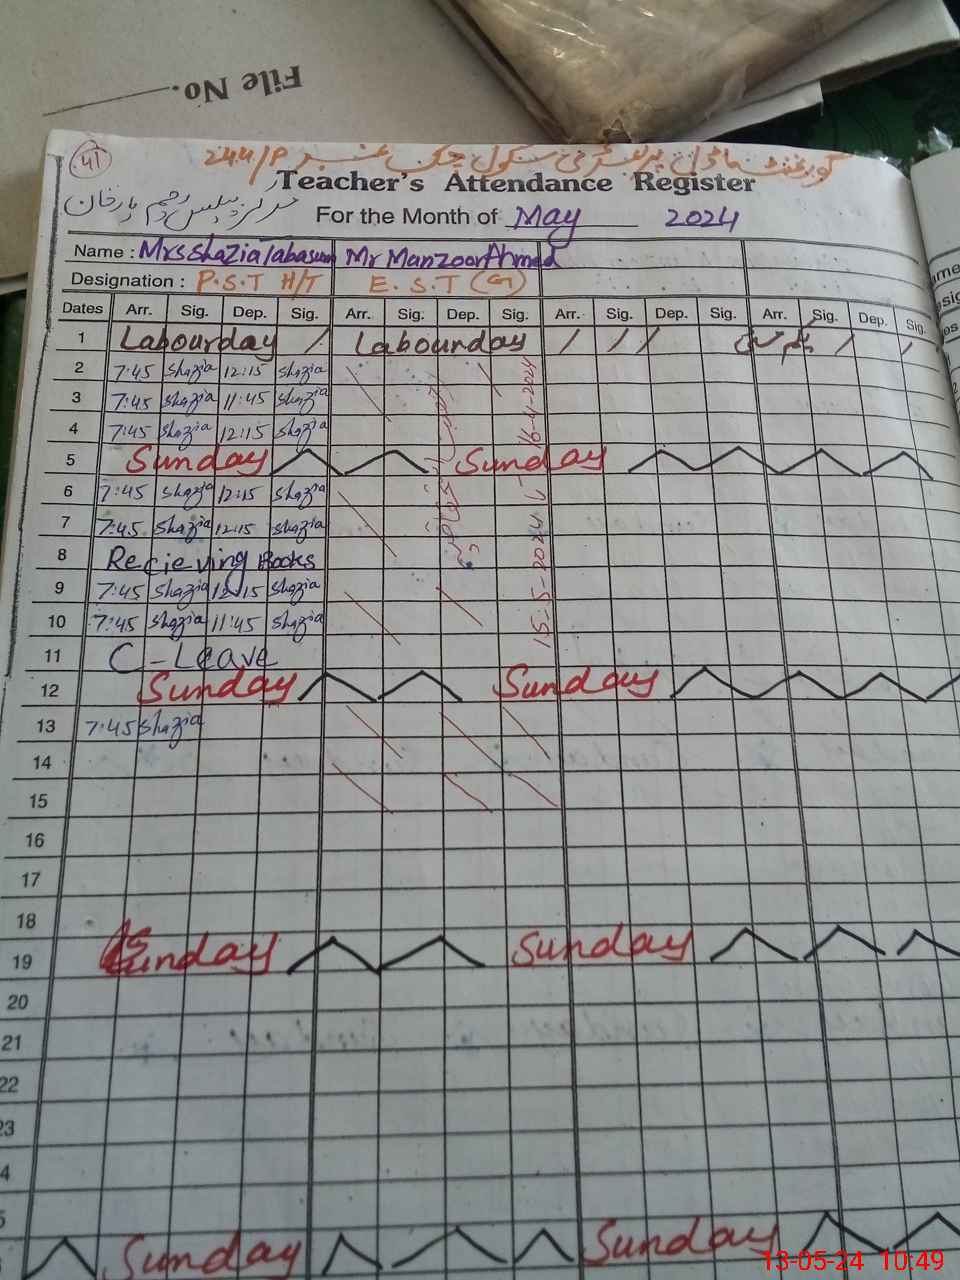 File No.
41
گورنمنٹ ماڈل پرائمری سکول چک نمبر 244/P
Teacher's Attendance Register
مرکز پیلس رحیم یار خان
For the Month of May 2024
Name : Mrs Shazia Tabasum Mr Manzoor Ahmed
Designation : P.S.T H/T E.S.T (G)
Dates Arr. Sig. Dep. Sig. Arr. Sig. Dep. Sig. Arr. Sig. Dep. Sig. Arr. Sig. Dep. Sig.
1 Labourday / Labounday / / / یکم مئی / /
2 7:45 Shazia 12:15 Shazia
3 7:45 Shazia 11:45 Shazia
4 7:45 Shazia 12:15 Shazia
16-4-2024
5 Sunday Sunday
6 7:45 Shazia 12:15 Shazia
7 7:45 Shazia 12:15 Shazia
15-5-2024
8 Recieving Books
9 7:45 Shazia 12:15 Shazia
10 7:45 Shazia 11:45 Shazia
11 C-Leave
12 Sunday Sunday
13 7:45 Shazia
14
15
16
17
18
19 Sunday Sunday
20
21
22
23
4
5
Sunday Sunday
13-05-24 10:49